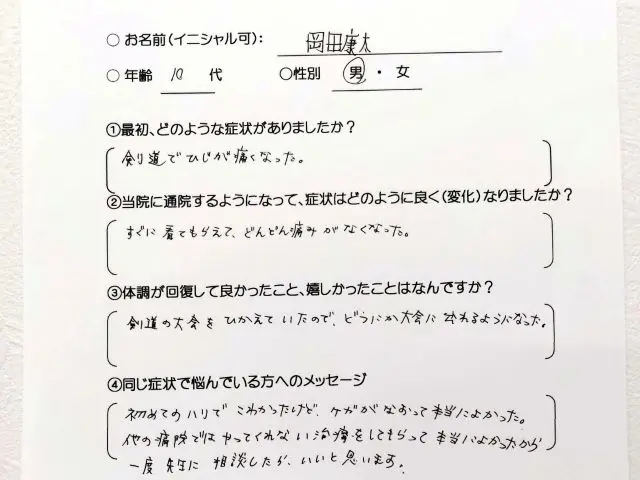 ○ お名前(イニシャル可): 岡田康太
○ 年齢 10 代 ○性別 男 ・ 女
①最初、どのような症状がありましたか?
剣道でひじが痛くなった。
②当院に通院するようになって、症状はどのように良く(変化)なりましたか?
すぐに看てもらえて、どんどん痛みがなくなった。
③体調が回復して良かったこと、嬉しかったことはなんですか?
剣道の大会をひかえていたので、どうにか大会に出れるようになった。
④同じ症状で悩んでいる方へのメッセージ
初めてのハリでこわかったけど、ケガがなおって本当によかった。
他の病院ではやってくれない治療をしてもらって本当によかったから
一度先生に相談したら、いいと思います。